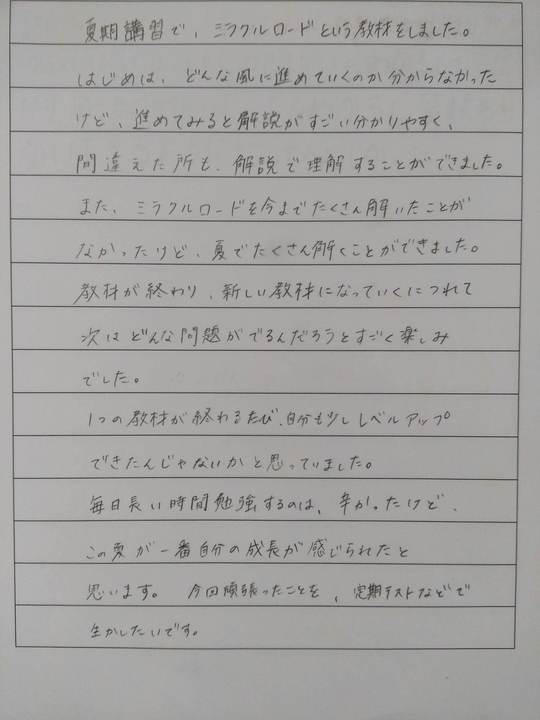 夏期講習で、ミラクルロードという教材をしました。
はじめは、どんな風に進めていくのか分からなかった
けど、進めてみると解説がすごい分かりやすく、
間違えた所も、解説で理解することができました。
また、ミラクルロードを今までたくさん解いたことが
なかったけど、夏でたくさん解くことができました。
教材が終わり、新しい教材になっていくにつれて
次はどんな問題がでるんだろうとすごく楽しみ
でした。
1つの教材が終わるたび、自分も少しレベルアップ
できたんじゃないかと思っていました。
毎日長い時間勉強するのは、辛かったけど、
この夏が一番自分の成長が感じられたと
思います。 今回頑張ったことを、定期テストなどで
生かしたいです。